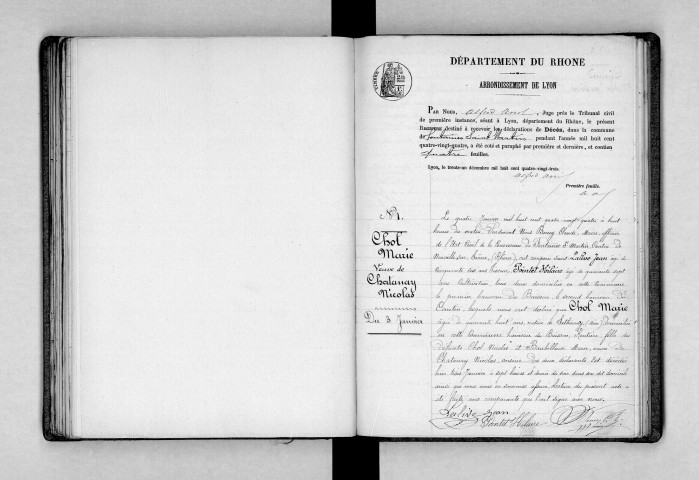 DÉPARTEMENT DU RHONE
ARRONDISSEMENT DE LYON
TIMBRE
PAR NOUS, Alfred , Juge près le Tribunal civil
de première instance, séant à Lyon, département du Rhône, le présent
REGISTRE destiné à recevoir les déclarations de Décès, dans la commune
de Fontaines Saint Martin pendant l'année mil huit cent
quatre-vingt-quatre, a été coté et paraphé par première et dernière, et contien
quatre feuilles.
Lyon, le trente-un décembre mil huit cent quatre-vingt-trois.
Première feuille.
N° 1.
Chol
Marie
Veuve de
Chatanay
Nicolas
Du 3 Janvier
Le quatre Janvier mil huit cent quatre vingt quatre à huit
heures du matin Pardevant Nous Claude, Maire, officier
de l'Etat Civil de la Commune de Fontaines St Martin, Canton de
Neuville sur Saône, (Rhône), ont comparu Jean âgé de
cinquante six ans Pointet Hilaire âgé de quarante sept
ans Cultivateurs, tous deux domiciliés en cette commune
le premier hameau du Buisson, le second hameau de
lesquels nous ont déclaré que Chol Marie
âgée de huit ans, native de domiciliée
en cette commune hameau du Buisson, Rentière, fille des
défunts Chol Nicolas et Marie, veuve de
Chatanay Nicolas, des deux déclarants Est décédée
hier trois Janvier à sept heures et demie du soir dans son dit domicile
ainsi que nous nous en sommes assuré, lecture du présent acte a
été faite aux comparants qui l'ont signé avec nous.
Jean
Pointet Hilaire